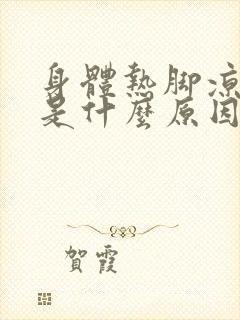 身體熱脚涼
是什麼原因
賀霞